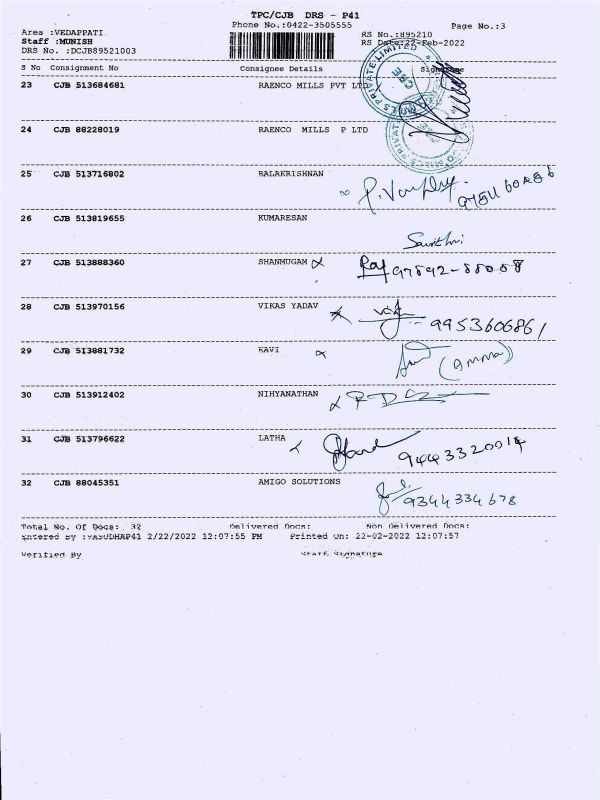 TPC/CJB DRS - P41
Phone No.:0422-3505555
Page No.:3
Area :VEDAPPATI
Staff :MUNISH
DRS No. :DCJB89521003
RS No.:895210
RS Date:22-Feb-2022
S No Consignment No Consignee Details Signature
23 CJB 513684681 RAENCO MILLS PVT LTD
24 CJB 88228019 RAENCO MILLS P LTD
25 CJB 513716802 BALAKRISHNAN
26 CJB 513819655 KUMARESAN
27 CJB 513888360 SHANMUGAM Raj 97892-88058
28 CJB 513970156 VIKAS YADAV 9953606861
29 CJB 513881732 KAVI (Amma)
30 CJB 513912402 NIHYANATHAN
31 CJB 513796622 LATHA 9443320014
32 CJB 88045351 AMIGO SOLUTIONS 9344334678
Total No. Of Docs: 32 Delivered Docs: Non Delivered Docs:
Entered By :VASUDHAP41 2/22/2022 12:07:55 PM Printed On: 22-02-2022 12:07:57
Verified By Staff Signature